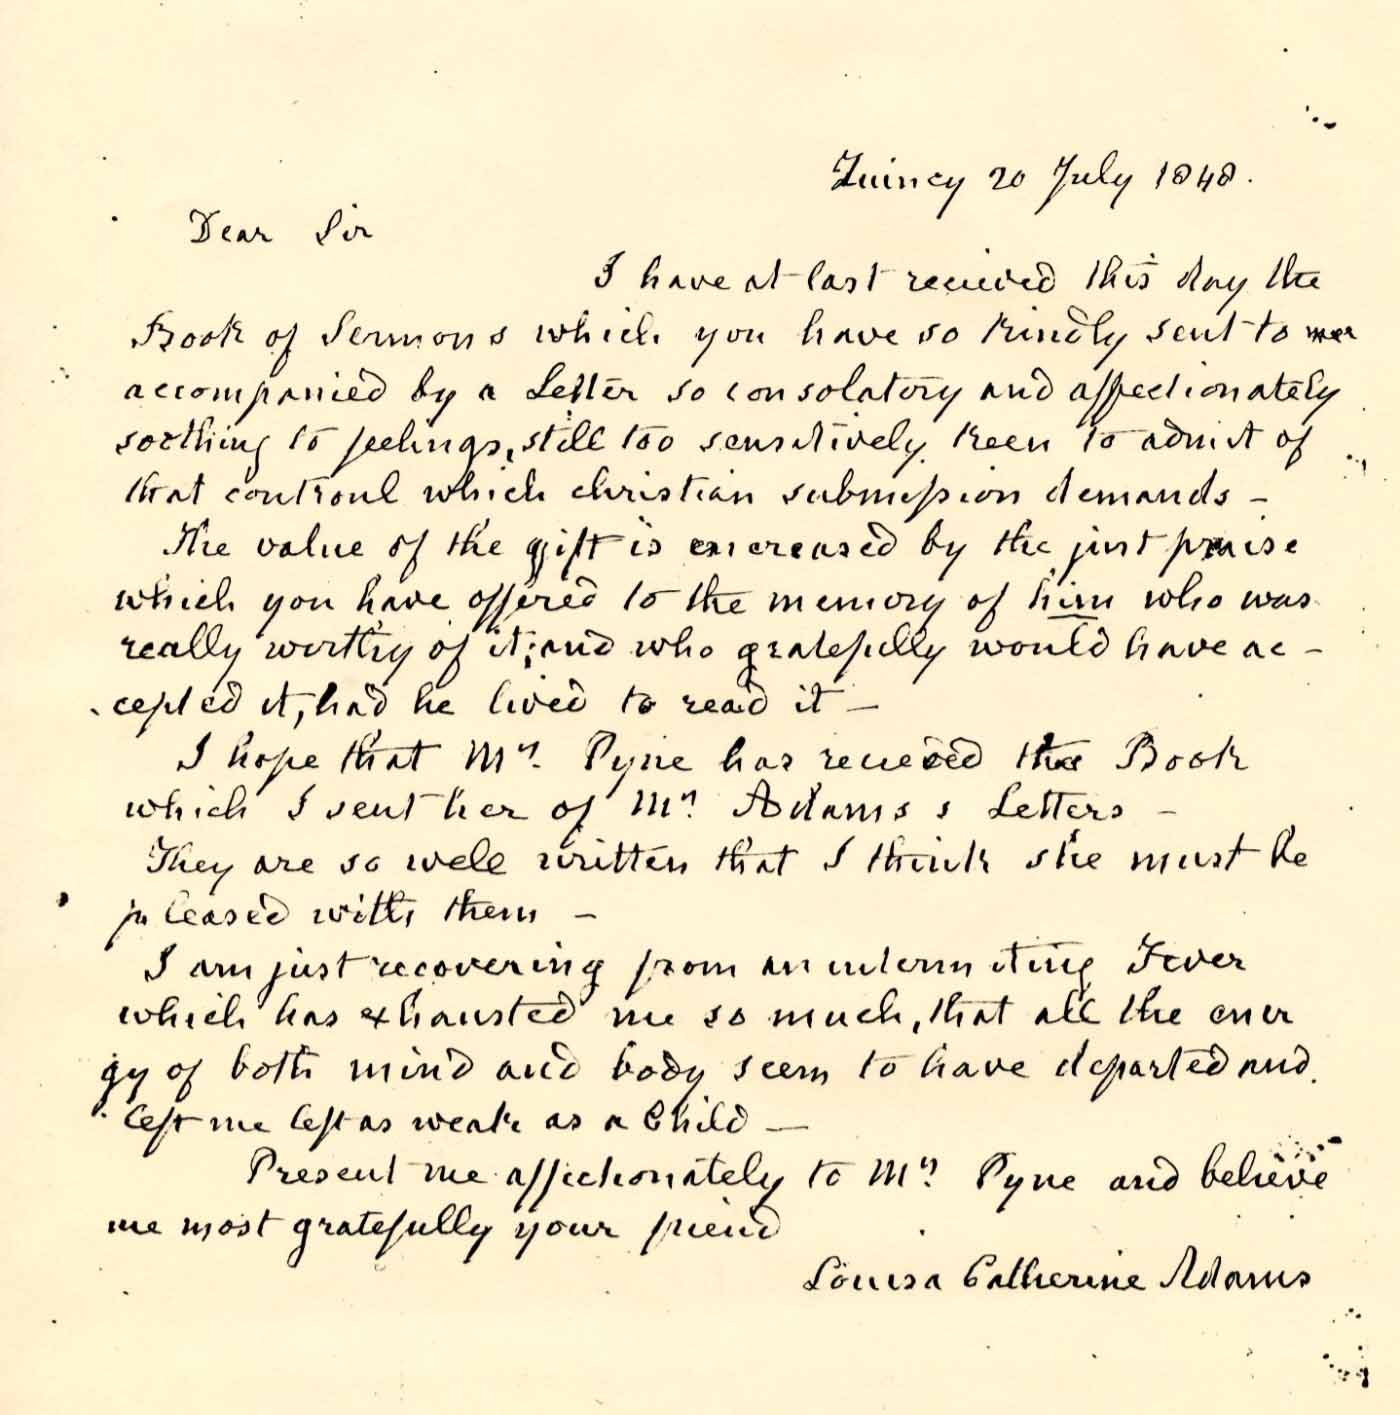 Quincy 20 July 1848.
Dear Sir
I have at last recieved this day the
Book of Sermons which you have so kindly sent to me
accompanied by a Letter so consolatory and affectionately
soothing to feelings, still too sensitively keen to admit of
that controul which christian submission demands –
The value of the gift is encreased by the just praise
which you have offered to the memory of him who was
really worthy of it; and who gratefully would have ac–
cepted it, had he lived to read it –
I hope that Mrs. Pyne has recieved the Book
which I sent her of Mrs Adams s Letters –
They are so well written that I think she must be
pleased with them –
I am just recovering from an intermitting Fever
which has exhausted me so much, that all the ener
gy of both mind and body seem to have departed and
left me left as weak as a Child –
Present me affectionately to Mrs. Pyne and believe
me most gratefully your friend
Louisa Catherine Adams